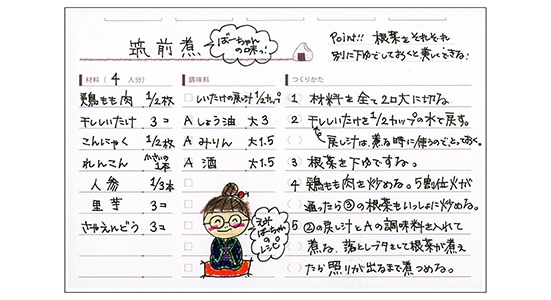 筑前煮
ばーちゃんの味っ!
Point!! 根菜をそれぞれ
別に下ゆでしておくと美しくできる!
材料 ( 4 人分)
鶏もも肉 1/2枚
干ししいたけ 3コ
こんにゃく 1/2枚
れんこん 小さいの1本
人参 1/3本
里芋 3コ
きぬさやえんどう 3コ
調味料
しいたけの戻し汁 1/2カップ
A しょう油 大3
A みりん 大1.5
A 酒 大1.5
ばーちゃんのレシピ
つくりかた
1 材料を全て2口大に切る
2 干ししいたけを1/2カップの水で戻す。
戻し汁は、煮る時に使うので、とっておく。
3 根菜を下ゆでする。
4 鶏もも肉を炒める。5割位火が
通ったら③の根菜もいっしょに炒める。
5 ②の戻し汁とAの調味料を入れて
煮る、落としブタをして根菜が煮え
たら照りが出るまで煮つめる。